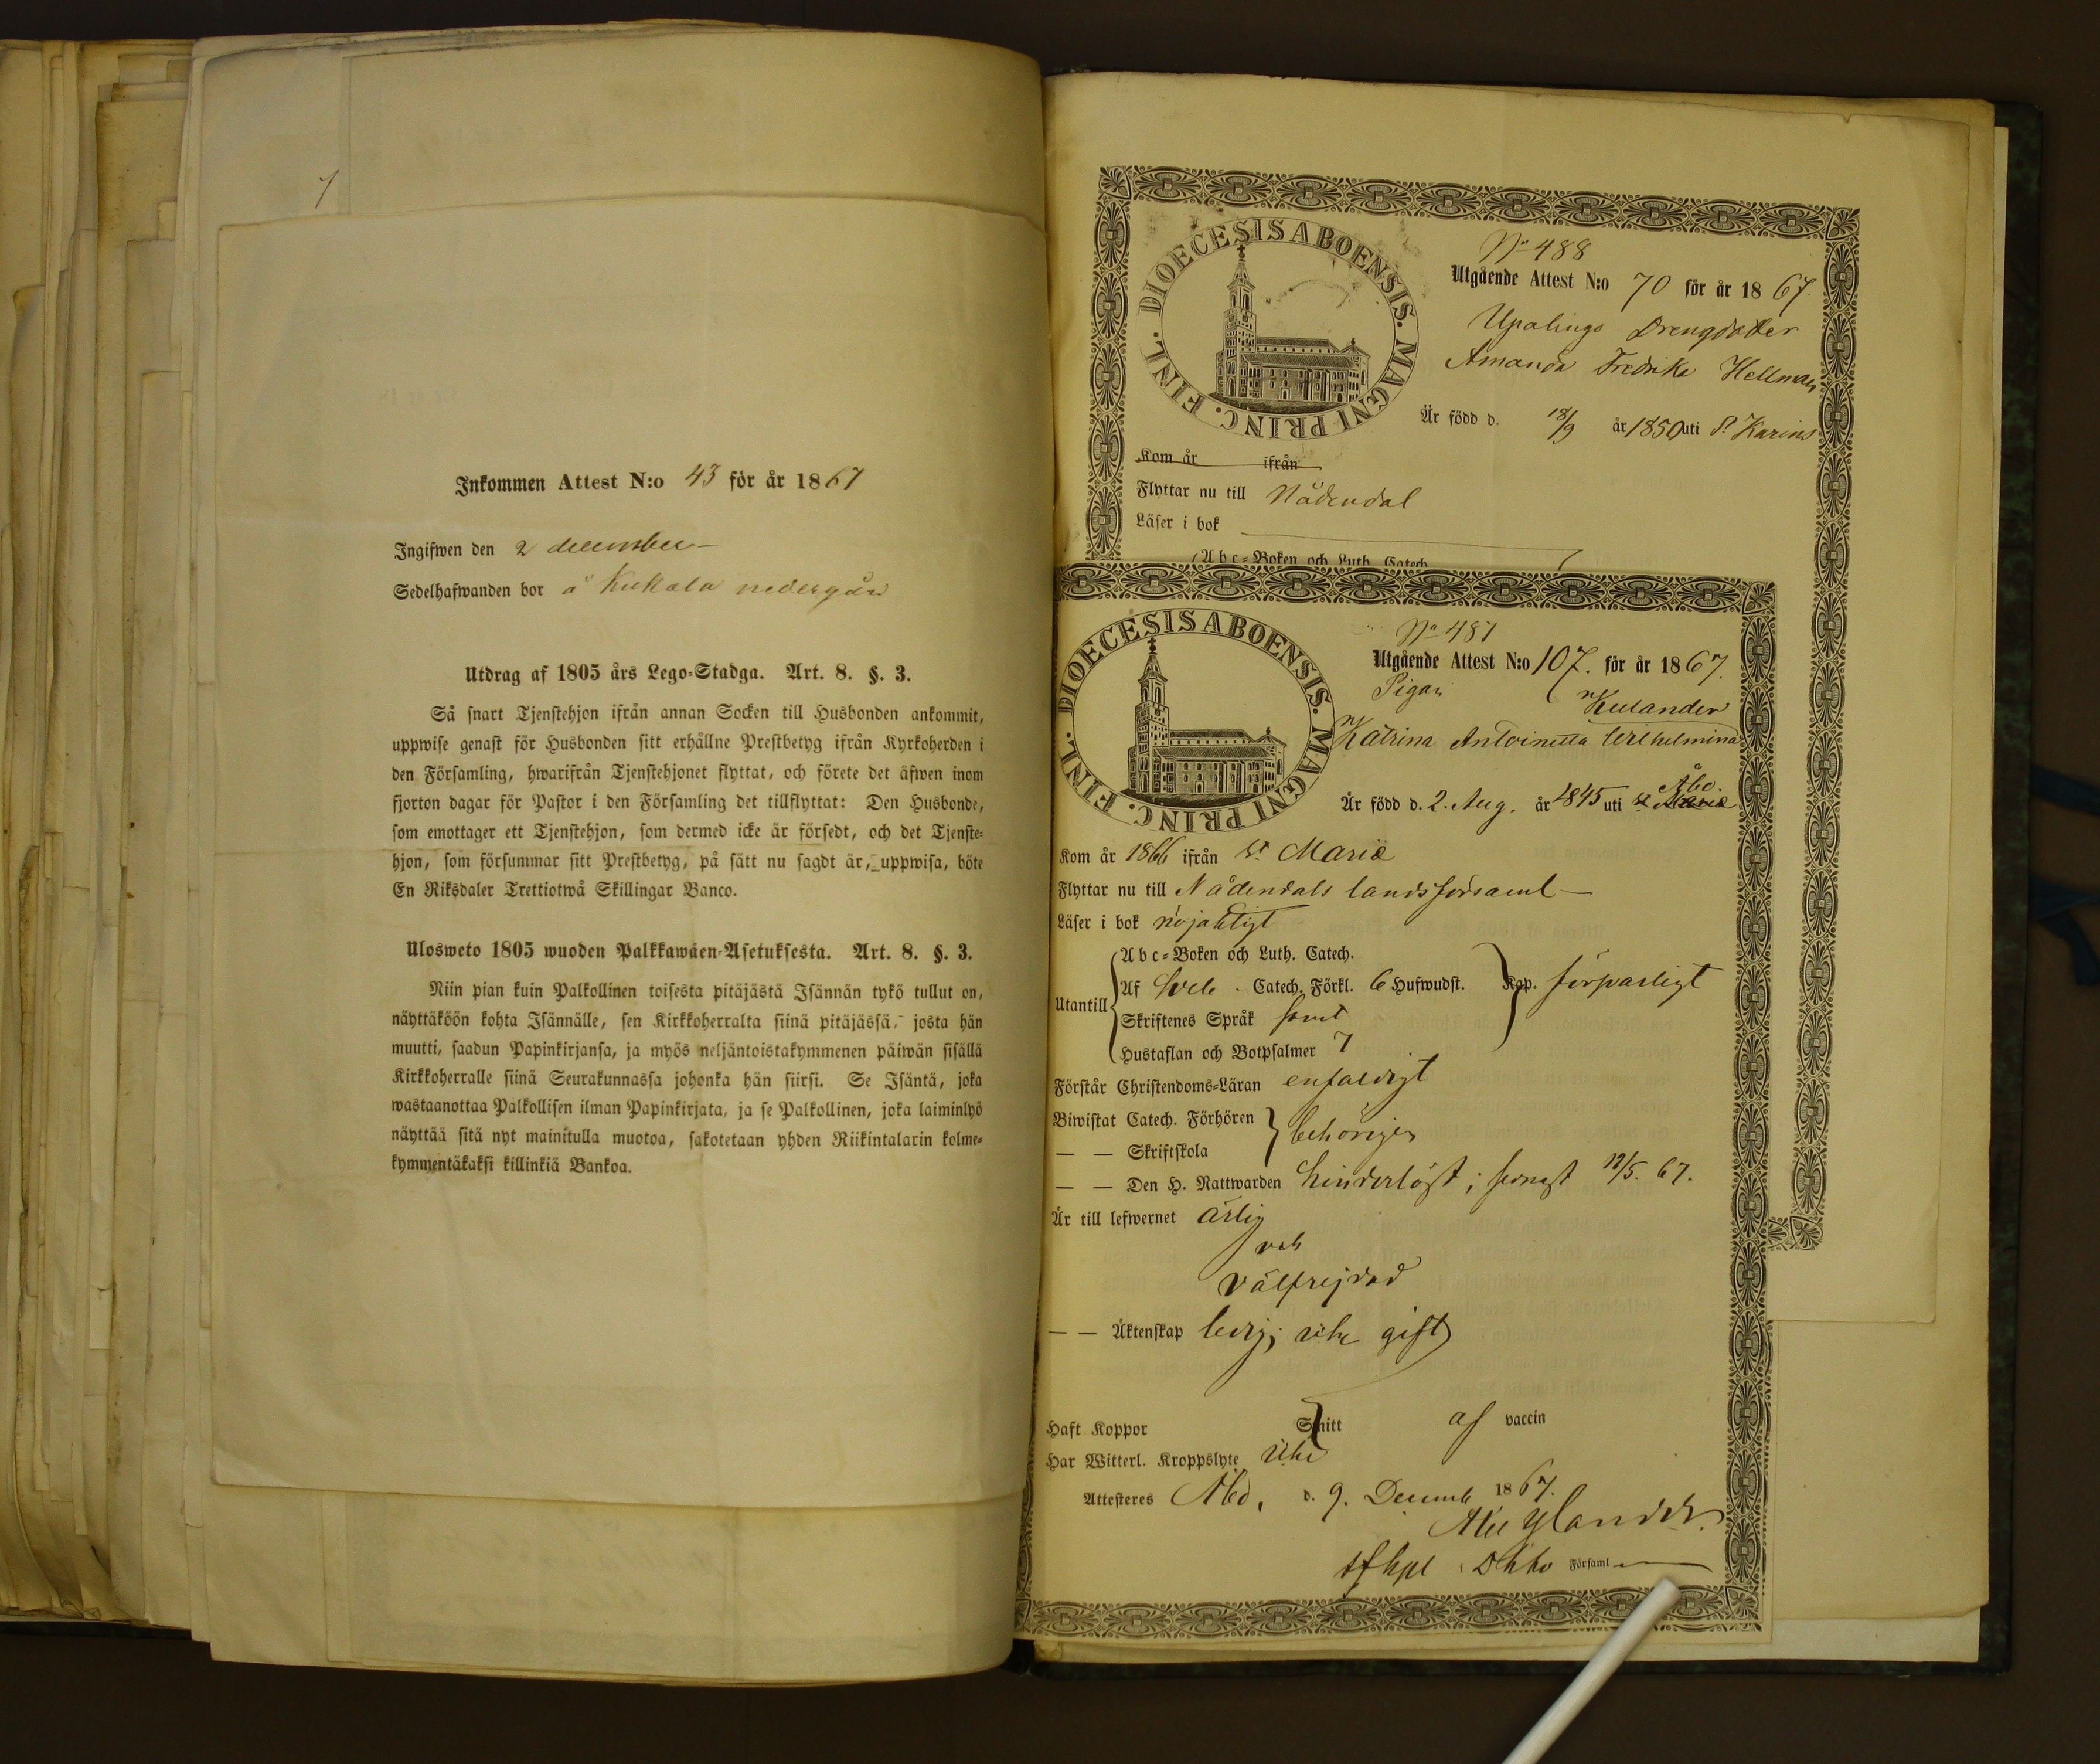 7
Inkommen Attest N:o 43 för år 1867
Ingifwen den 2 december
Sedelhafwanden bor å Kukola nedergård
Utdrag af 1805 års Lego-Stadga. Art. 8. §. 3.
Så snart Tjenstehjon ifrån annan Socken till Husbonden ankommit,
uppwise genast för Husbonden sitt erhållne Prestbetyg ifrån Kyrkoherden i
den Församling, hwarifrån Tjenstehjonet flyttat, och förete det äfwen inom
fjorton dagar för Pastor i den Församling det tillflyttat: Den Husbonde,
som emottager ett Tjenstehjon, som dermed icke är försedt, och det Tjenste-
hjon, som försummar sitt Prestbetyg, på sätt nu sagdt är, uppwisa, böte
En Riksdaler Trettiotwå Skillingar Banco.
Ulosweto 1805 wuoden Palkkawäen-Asetuksesta. Art. 8. §. 3.
Niin pian kuin Palkollinen toisesta pitäjästä Isännän tykö tullut on,
näyttäköön kohta Isännälle, sen Kirkkoherralta siinä pitäjässä, josta hän
muutti, saadun Papinkirjansa, ja myös neljäntoistakymmenen päiwän sisällä
Kirkkoherralle siinä Seurakunnassa johonka hän siirsi. Se Isäntä, joka
wastaanottaa Palkollisen ilman Papinkirjata, ja se Palkollinen, joka laiminlyö
näyttää sitä nyt mainitulla muotoa, sakotetaan yhden Riikintalarin kolme-
kymmentäkaksi killinkiä Bankoa.
DIOECESIS ABOENSIS. MAGNI PRINC. FINL.
No 488
Utgående Attest N:o 70 för år 1867.
Drengdotter
Amanda Fredrika Hellman
Är född d. 18/9 år 1850 uti St Karins
Kom år ifrån
Flyttar nu till Nådendal
Läser i bok
Abc-Boken och Luth. Catech.
DIOECESIS ABOENSIS. MAGNI PRINC. FINL.
No 487
Utgående Attest N:o 107. för år 1867.
Pigan
Kulander
Katrina Antoinetta Wilhelmina
Åbo.
Är född d. 2. Aug. år 1845 uti St Marie
Kom år 1866 ifrån St Mariæ
Flyttar nu till Nådendals landsförsaml
Läser i bok nöjaktigt
Abc-Boken och Luth. Catech.
Utantill Af Sveb. Catech. Förkl. 6 Hufwudst. Kap. försvarligt
Skriftenes Språk samt
Hustaflan och Botpsalmer 7
Förstår Christendoms-Läran enfaldigt
Biwistat Catech. Förhören
behörigen
— — Skriftskola
— — Den H. Nattwarden hinderlöst; senast 12/5. 67.
Är till lefwernet ärlig
och
välfrejdad
— — Äktenskap ledig; icke gift
Haft Koppor Snitt af vaccin
Har Witterl. Kroppslyte icke
Attesteres Åbo, d. 9. Decemb 1867.
Ylander.
Församl